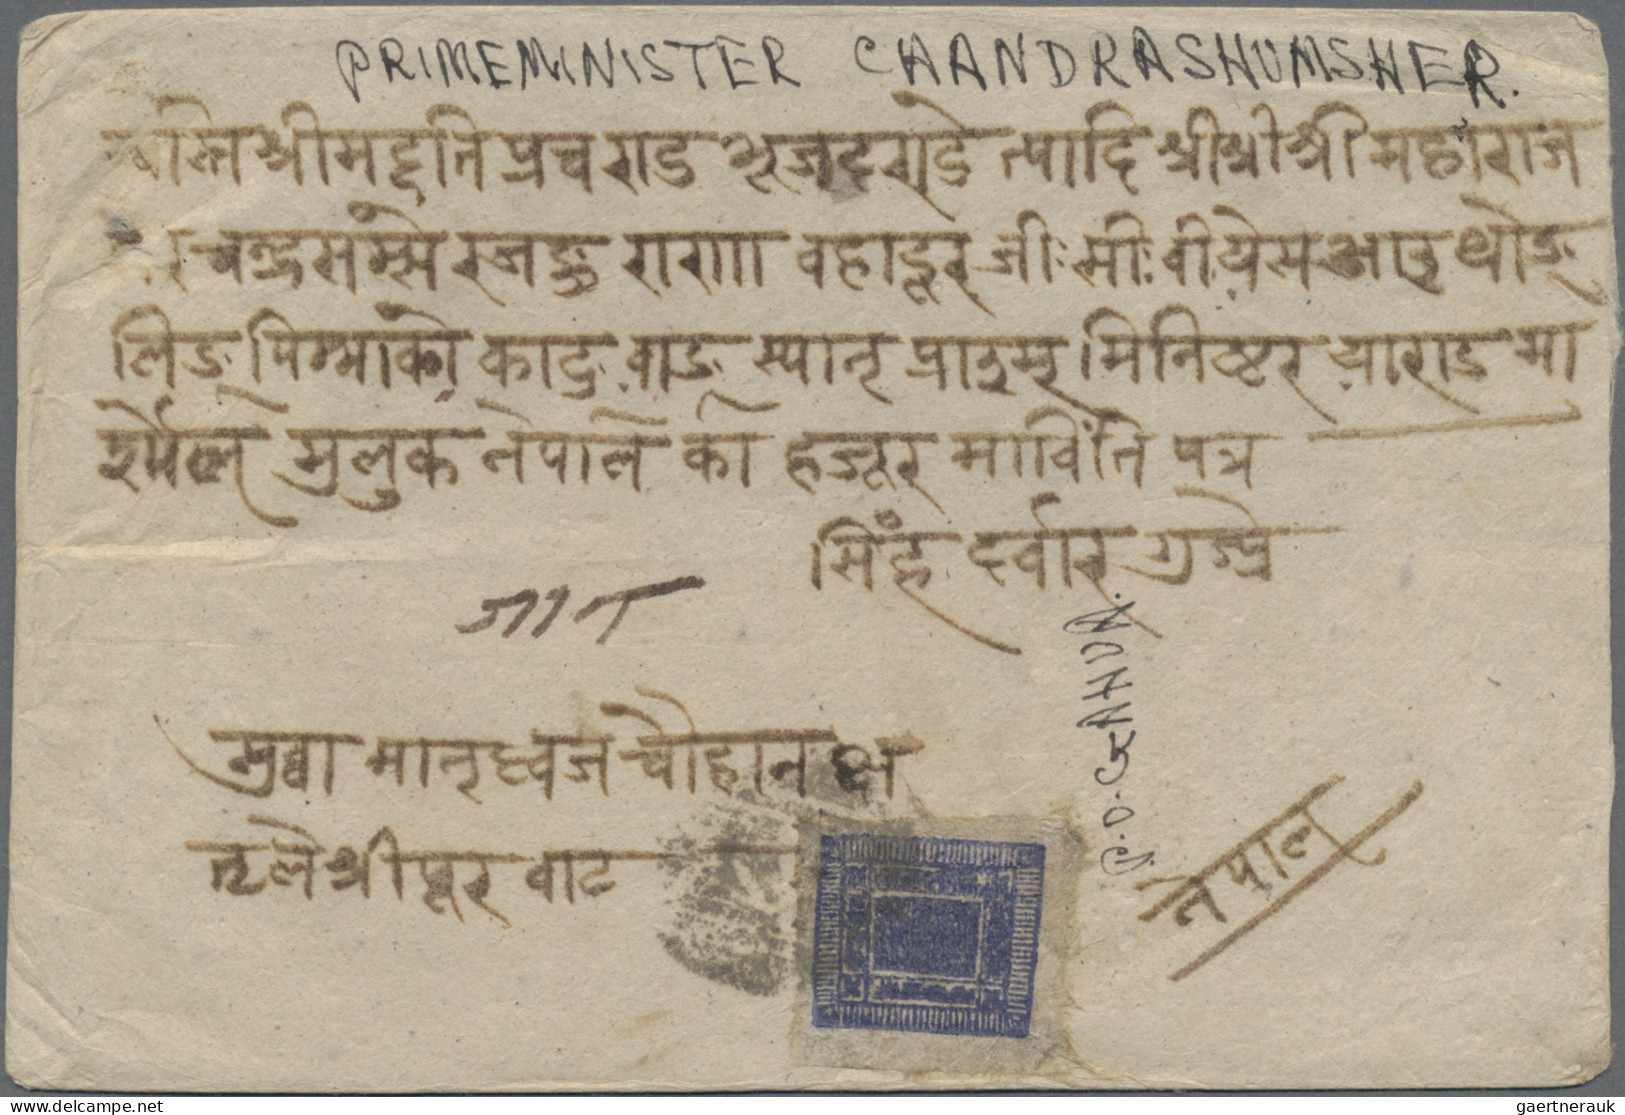 PRIMEMINISTER CHANDRASHUMSHER.
स्वस्ति श्रीमद्दति प्रचराड भूजदराडे त्पादि श्रीश्रीश्री महाराज
चन्द्रसम्सेरजङ्ग राराा वहादूर जीःसीःवीःयेस आइ थोङ
लिङ पिम्माको काङ वाङ स्यान् प्राइम् मिनिष्टर याराड मा
र्सैल मुलुक नेपाल को हजूर मा विंति पत्र
सिंह दर्वार
सुब्बा मातृध्वज चौहान
श्रीपूर वाट
P.O. JAHUR.
नेपाल
delcampe.net
gaertnerauk